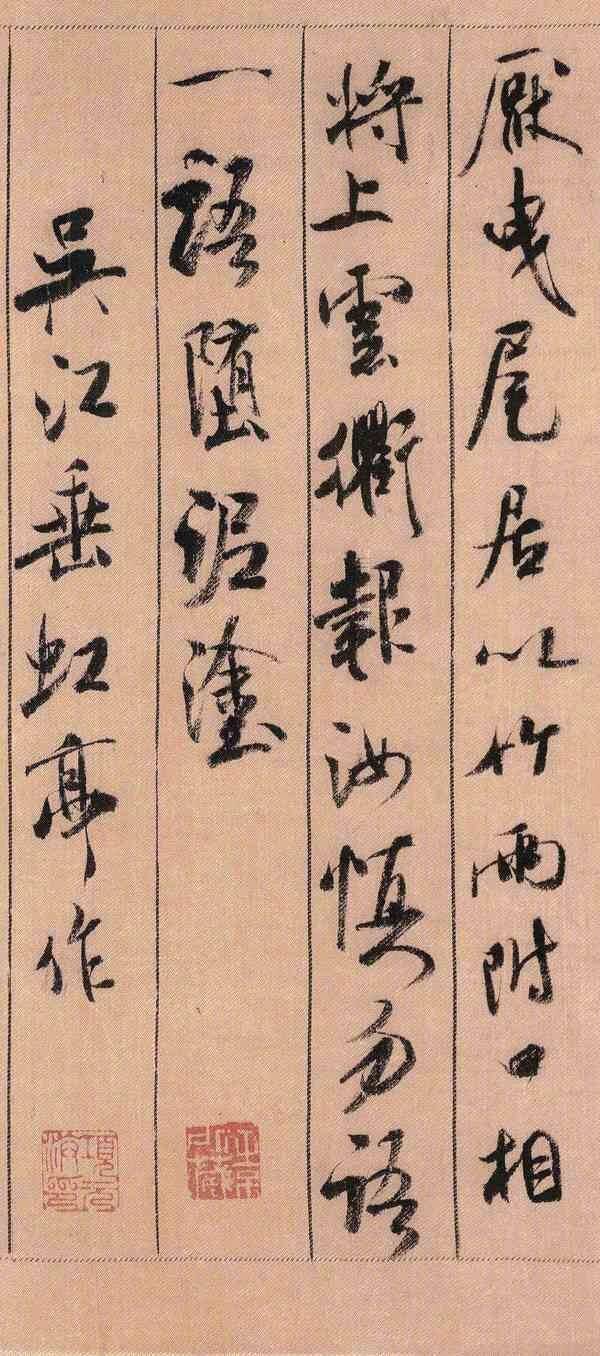 厭曳尾居以竹兩附口相
將上雲衢報汝慎勿語
一語墮泥塗
吳江垂虹亭作
項元汴印